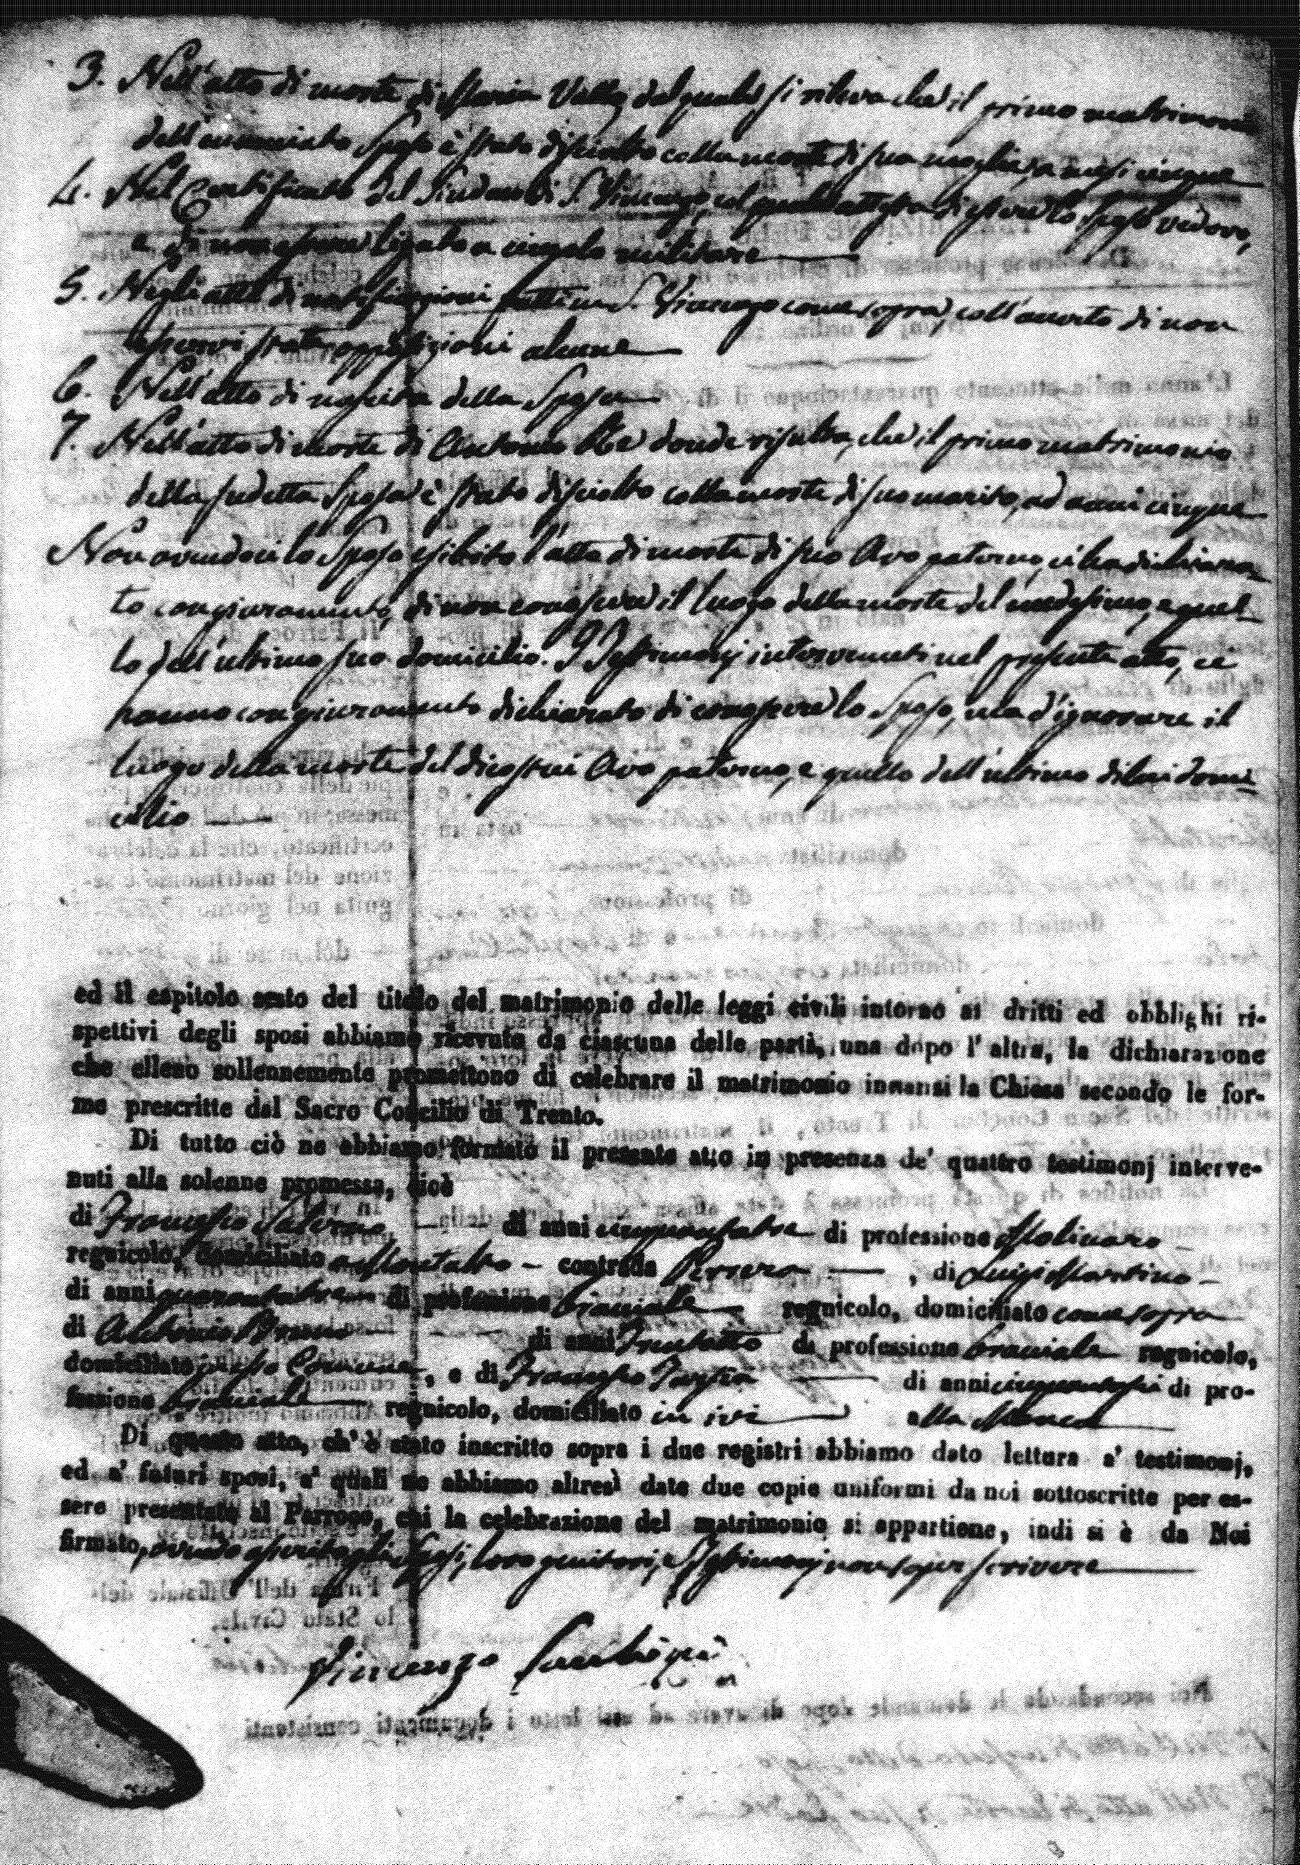 3. Nell'atto di morte di Maria Valle dal quale si rileva che il primo matrimonio
dell'enunciato Sposo è stato disciolto colla morte di sua moglie, a mesi cinque
4. Nel Certificato del Sindaco di S. Vincenzo col quale attesta di essere lo Sposo vedovo,
e di non essere legato a vincolo militare
5. Negli atti di notificazioni fatti in S. Vincenzo come sopra coll'averto di non
esservi state opposizioni alcune
6. Nell'atto di nascita della Sposa
7. Nell'atto di morte di Antonio donde risulta, che il primo matrimonio
della sudetta Sposa è stato disciolto colla morte di suo marito, ad anni cinque
Non avendo lo Sposo esibito l'atto di morte di suo Avo paterno, ci ha dichiara-
to con giuramento, di non conoscere il luogo della morte del medesimo, e quel-
lo dell'ultimo suo domicilio. I Testimonj intervenuti nel presente atto, ce
hanno con giuramento dichiarato di conoscere lo Sposo, ma d'ignorare il
luogo della morte del dicostui Avo paterno, e quello dell'ultimo di lui domi-
cilio
ed il capitolo sesto del titolo del matrimonio delle leggi civili intorno ai dritti ed obblighi ri-
spettivi degli sposi abbiamo ricevuto da ciascuna delle parti, una dopo l'altra, la dichiarazione
che elleno sollennemente promettono di celebrare il matrimonio innansi la Chiesa secondo le for-
me prescritte dal Sacro Concilio di Trento.
Di tutto ciò ne abbiamo formato il presente atto in presenza de' quattro testimonj interve-
nuti alla solenne promessa, cioè
di Francesco Salerno di anni cinquantatre di professione Molinaro
regnicolo, domiciliato a Montalto contrada , di Luigi Martino
di anni quarantatre di professione bracciale regnicolo, domiciliato come sopra
di Antonio Bruno di anni Trentotto di professione bracciale regnicolo,
domiciliato in questo Comune, e di Francesco di anni cinquantasei di pro-
fessione bracciale regnicolo, domiciliato in ivi alla
Di questo atto, ch' è stato inscritto sopra i due registri abbiamo dato lettura a' testimonj,
ed a' futuri sposi, a' quali ne abbiamo altresì date due copie uniformi da noi sottoscritte per es-
sere presentate al Parroco, cui la celebrazione del matrimonio si appartiene, indi si è da Noi
firmato, avendo asserito gli Sposi, loro genitori, e Testimonj non saper scrivere
Vincenzo